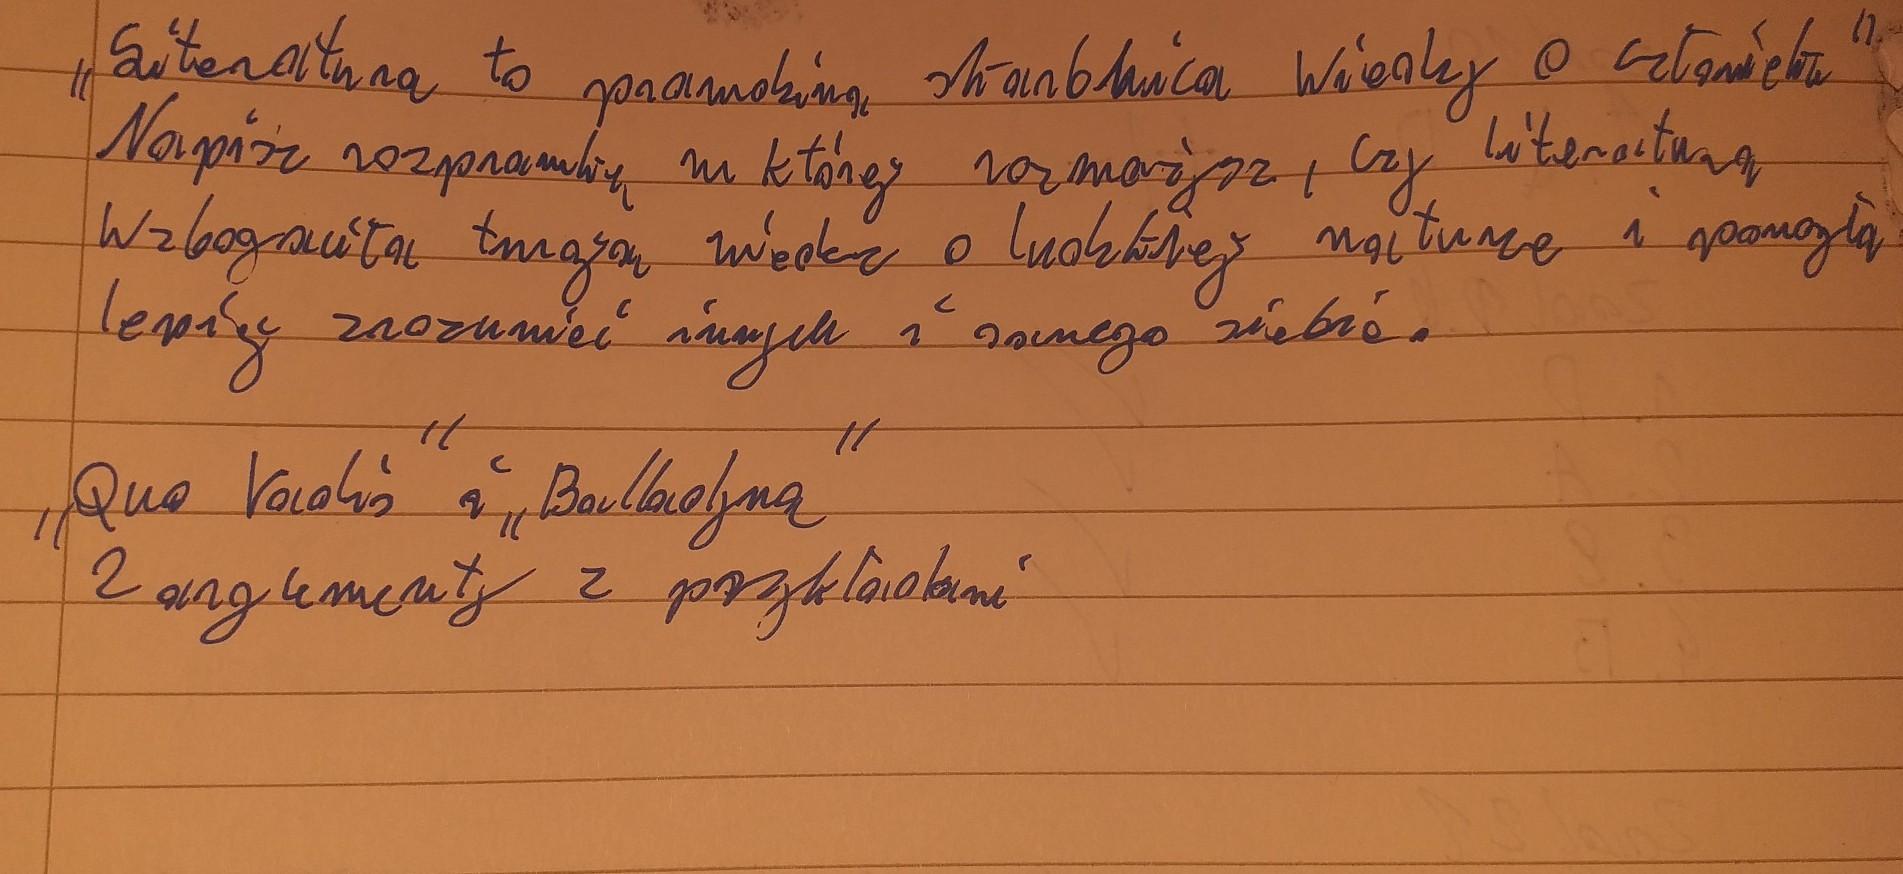 „Literatura to prawdziwa skarbnica wiedzy o człowieku"
Napisz rozprawkę w której rozważysz, czy literatura
wzbogaciła twoją wiedzę o ludzkiej naturze i pomogła
lepiej zrozumieć innych i samego siebie.
„Quo Vadis" i „Balladyna"
2 argumenty z przykładami